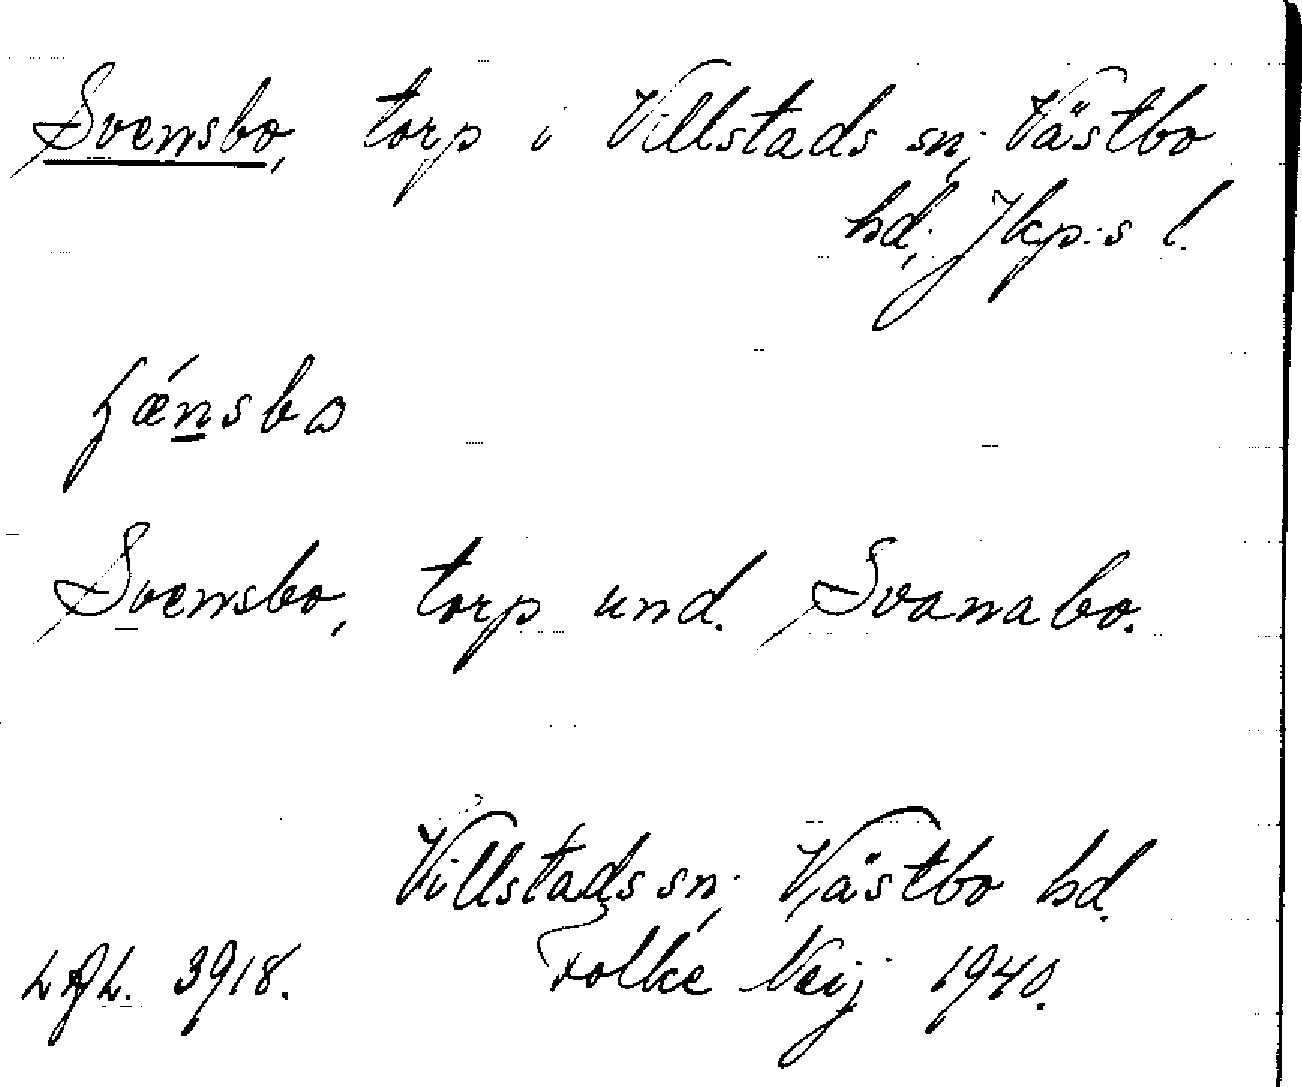 Svensbo, torp i Villstads sn; Västbo
hd; Jkp:s l.
Svensbo, torp und. Svanabo.
Villstads sn; Västbo hd.
Folke Neij 1940.
3918.